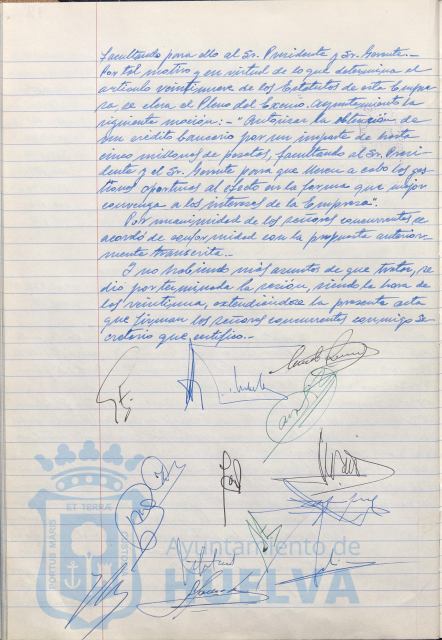 facultando para ello al Sr. Presidente y Sr. Gerente.-
Por tal motivo y en virtud de lo que determina el
artículo veintinueve de los Estatutos de esta Empre
sa se eleva al Pleno del Excmo. Ayuntamiento la
siguiente moción:- "Autorizar la obtención de
un crédito bancario por un importe de hasta
cinco millones de pesetas, facultando al Sr. Presi-
dente y al Sr. Gerente para que lleven a cabo las ges-
tiones oportunas al efecto en la forma que mejor
convenga a los intereses de la Empresa".
Por unanimidad de los señores concurrentes se
acordó de conformidad con la propuesta anterior-
mente transcrita.-
Y no habiendo más asuntos de que tratar, se
dio por terminada la sesión, siendo la hora de
las veintiuna, extendiéndose la presente acta
que firman los señores concurrentes conmigo Se-
cretario que certifico.-
PORTUS MARIS
ET TERRÆ
CUSTODIA
Ayuntamiento de
HUELVA